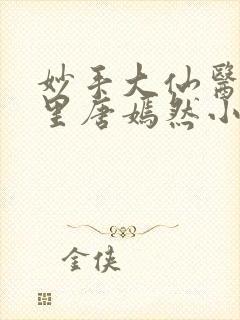 妙手大仙醫
里唐嫣然小
金俠